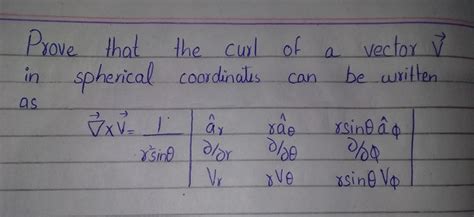 Prove that the curl of a vector V⃗
in spherical coordinates can be written
as
∇⃗ x V⃗ = 1/r²sinθ | âr râθ rsinθ âϕ |
| ∂/∂r ∂/∂θ ∂/∂ϕ |
| Vr rVθ rsinθ Vϕ |